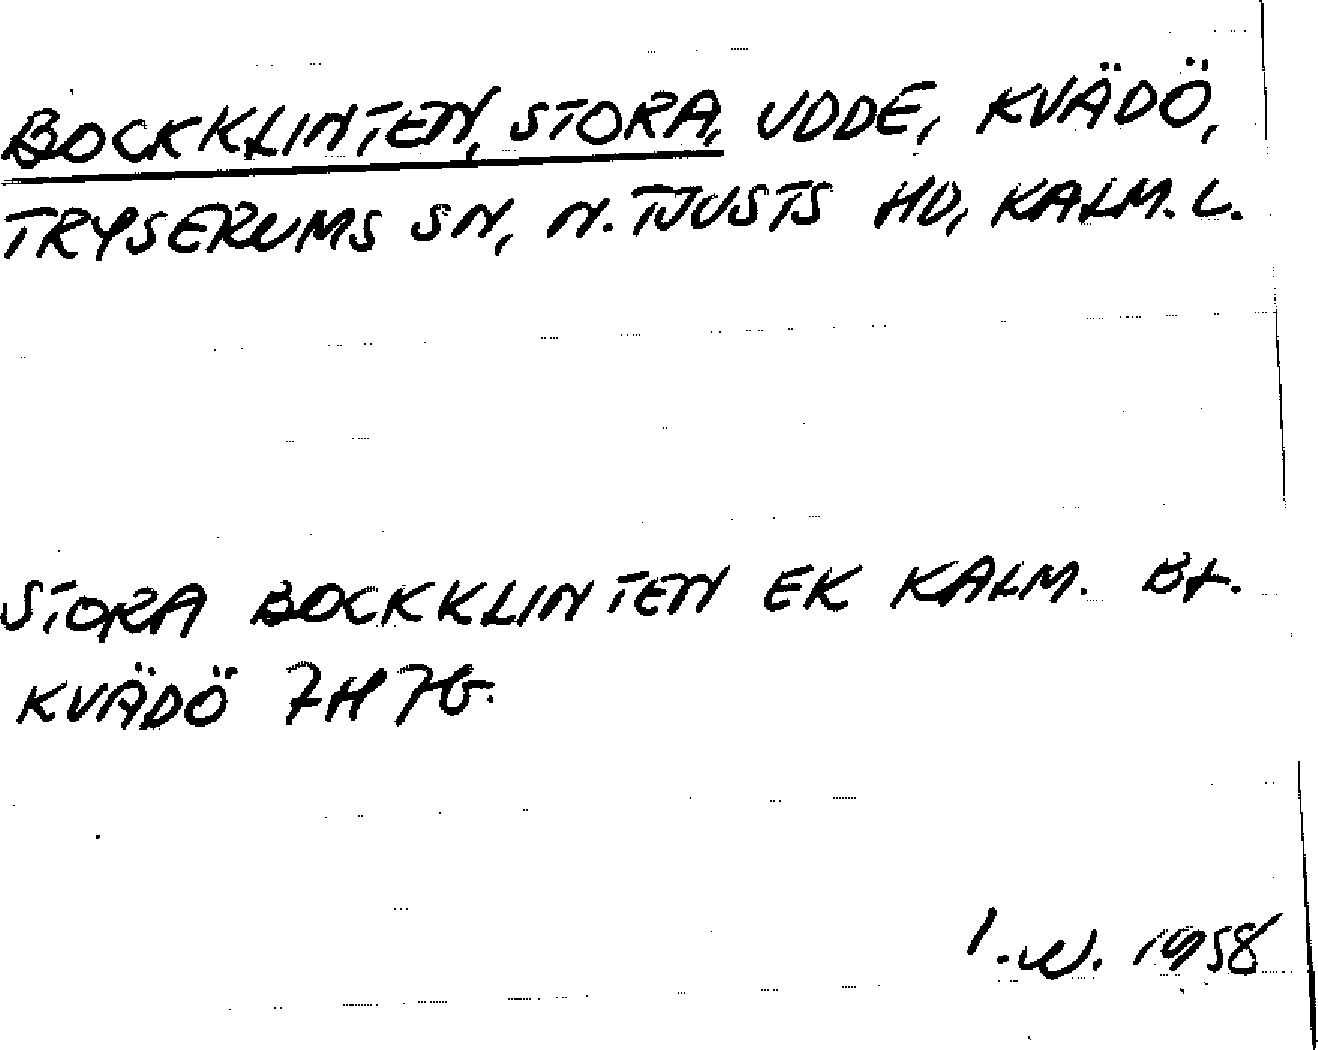 BOCKKLINTEN, STORA, UDDE, KVÄDÖ,
TRYSERUMS SN, N. TJUSTS HD, KALM. L.
STORA BOCKKLINTEN EK KALM. Bl.
KVÄDÖ 7H 7G.
I.W. 1958